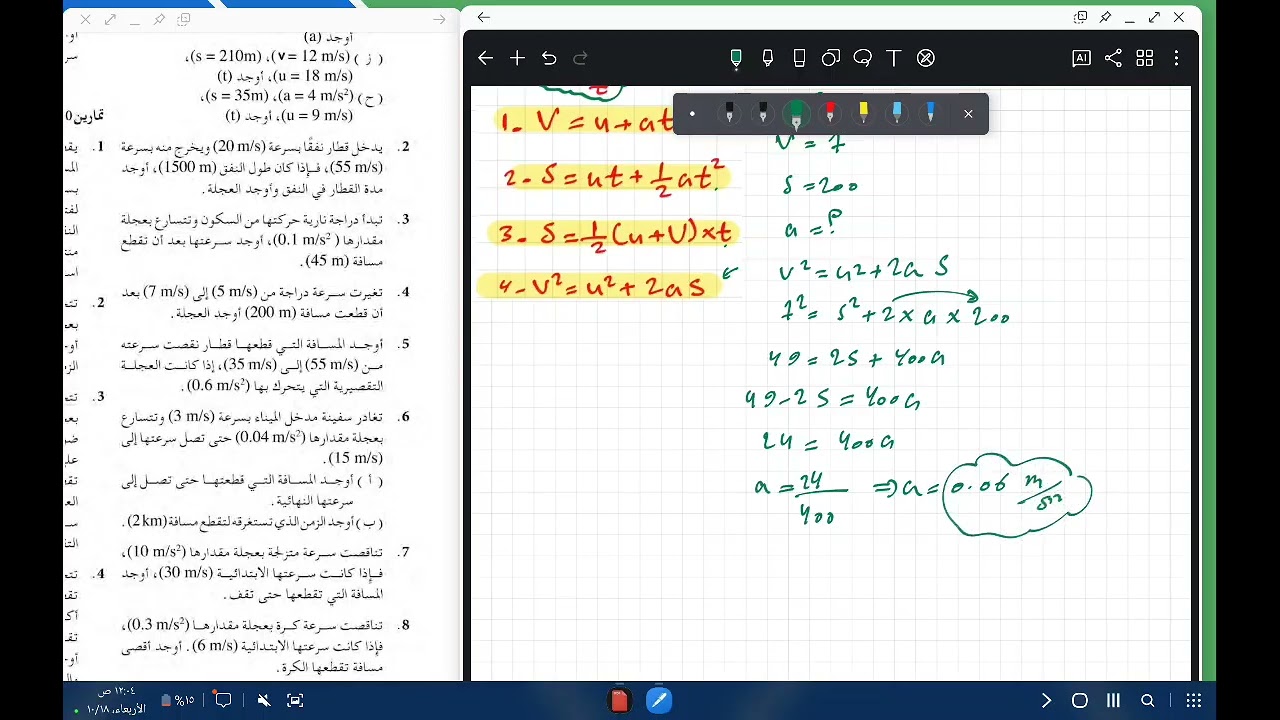 أوجد (a)
( ز ) (v = 12 m/s)، (s = 210m)،
(u = 18 m/s)، أوجد (t)
( ح ) (a = 4 m/s²)، (s = 35m)،
(u = 9 m/s)، أوجد (t)
2. يدخل قطار نفقًا بسرعة (20 m/s) ويخرج منه بسرعة
(55 m/s)، فإذا كان طول النفق (1500 m)، أوجد
مدة القطار في النفق وأوجد العجلة.
3. تبدأ دراجة نارية حركتها من السكون وتتسارع بعجلة
مقدارها (0.1 m/s²)، أوجد سرعتها بعد أن تقطع
مسافة (45 m).
4. تغيرت سرعة دراجة من (5 m/s) إلى (7 m/s) بعد
أن قطعت مسافة (200 m) أوجد العجلة.
5. أوجد المسافة التي قطعها قطار نقصت سرعته
من (55 m/s) إلى (35 m/s)، إذا كانت العجلة
التقصيرية التي يتحرك بها (0.6 m/s²).
6. تغادر سفينة مدخل الميناء بسرعة (3 m/s) وتتسارع
بعجلة مقدارها (0.04 m/s²) حتى تصل سرعتها إلى
(15 m/s).
( أ ) أوجد المسافة التي قطعتها حتى تصل إلى
سرعتها النهائية.
(ب) أوجد الزمن الذي تستغرقه لتقطع مسافة (2km).
7. تناقصت سرعة متزلجة بعجلة مقدارها (10 m/s²)،
فإذا كانت سرعتها الابتدائية (30 m/s)، أوجد
المسافة التي تقطعها حتى تقف.
8. تناقصت سرعة كرة بعجلة مقدارها (0.3 m/s²)،
فإذا كانت سرعتها الابتدائية (6 m/s). أوجد أقصى
مسافة تقطعها الكرة.
تمارين
1.
2.
3.
4.
1. V = u + at
2- S = ut + ½ at²
3- S = ½ (u + V) × t
4- V² = u² + 2as
V = 7
S = 200
a = ?
V² = u² + 2a S
7² = 5² + 2 × a × 200
49 = 25 + 400a
49 - 25 = 400a
24 = 400a
a = 24/400 ⇒ a = 0.06 m/s²
T
AI
١٢:٠٤ ص
الأربعاء، ١٠/١٨
%١٥